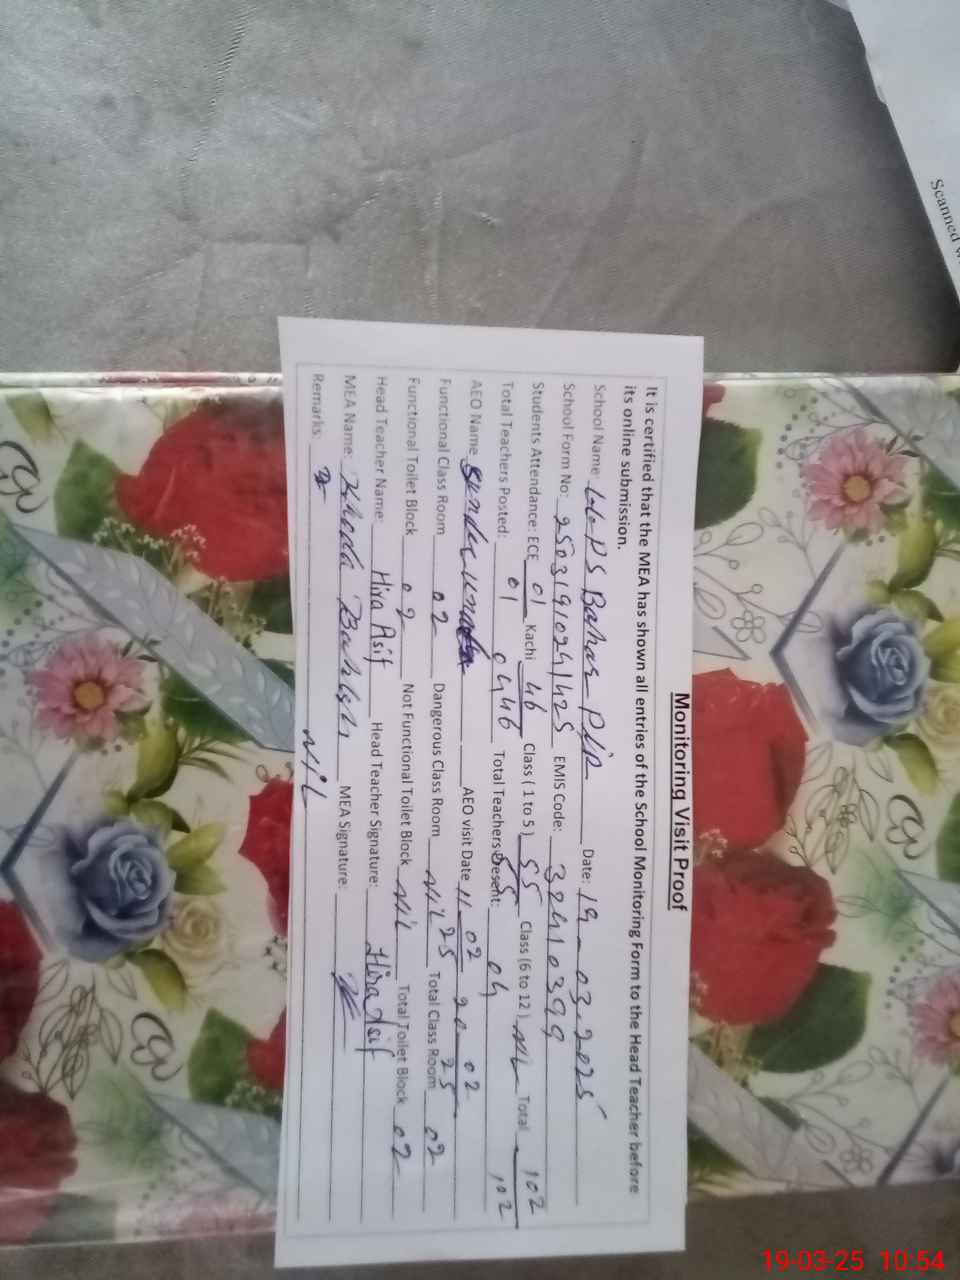 Scanned
Monitoring Visit Proof
It is certified that the MEA has shown all entries of the School Monitoring Form to the Head Teacher before
its online submission.
School Name: PS Date: 19-03-2025
School Form No: EMIS Code:
Students Attendance: ECE 01 Kachi 46 Class ( 1 to 5 ) 55 Class (6 to 12 ) Nil Total 102
01 46 55 102
Total Teachers Posted: 04 Total Teachers Present: 04
AEO Name AEO visit Date 11 02 20 02
25 25
Functional Class Room 02 Dangerous Class Room Nil Total Class Room 02
Functional Toilet Block 02 Not Functional Toilet Block Nil Total Toilet Block 02
Head Teacher Name: Hira Asif Head Teacher Signature: Hira Asif
MEA Name: MEA Signature:
Remarks: Nil
19-03-25 10:54